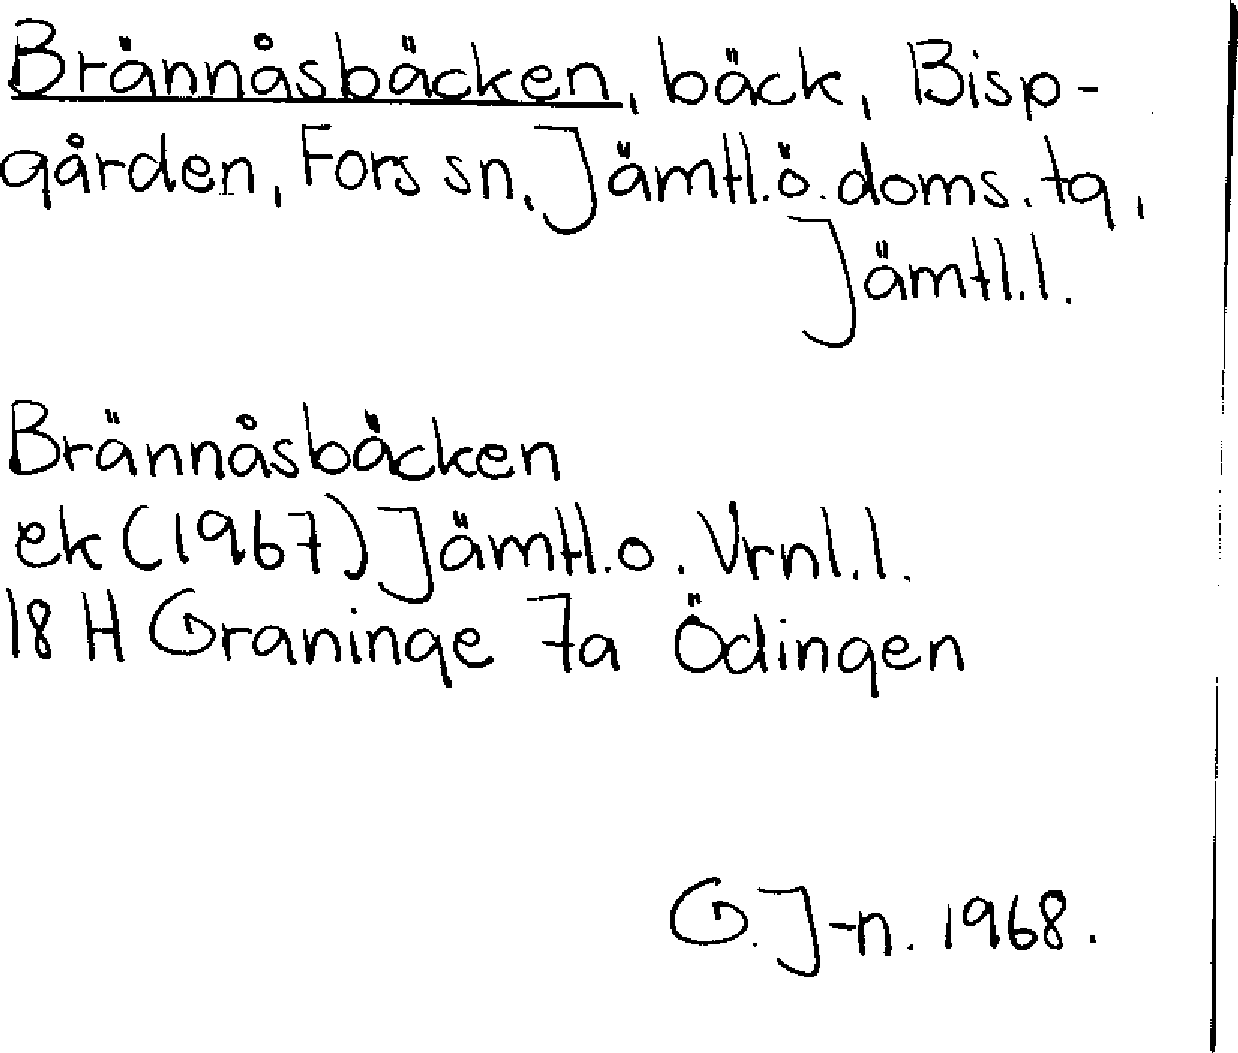 Brännåsbäcken, bäck, Bisp-
gården, Fors sn, Jämtl.ö.doms.tg,
Jämtl.l.
Brännåsbäcken
ek (1967) Jämtl.o. Vrnl.l.
18 H Graninge 7a Ödingen
G. J-n. 1968.